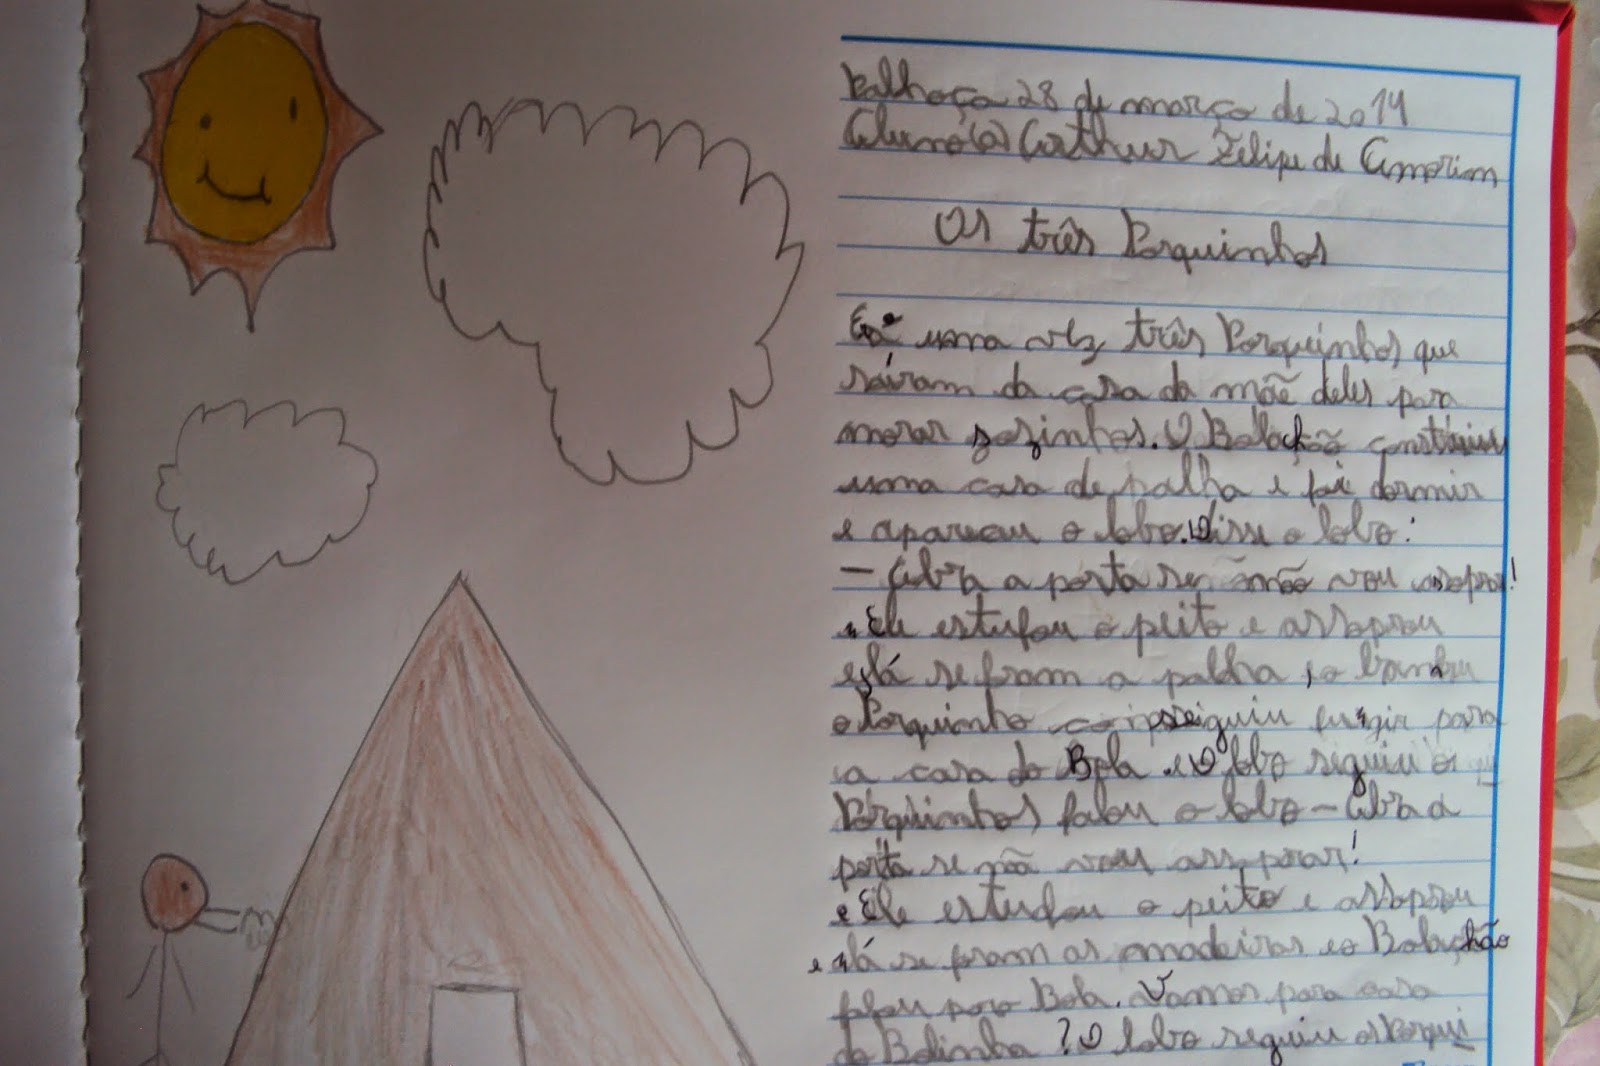 Palhoça 28 de março de 2014
Aluno(a) Arthur Felipe de Amorim
Os três Porquinhos
Era uma vez três Porquinhos que
sairam da casa da mãe deles para
morar sozinhos. O Bolachão construiu
uma casa de palha e foi dormir
e apareceu o lobo. Disse o lobo:
— Abra a porta se não vou assoprar!
Ele estufou o peito e assoprou
e lá se fram a palha, o bambu
o Porquinho conseguiu fugir para
a casa do Bola e O lobo seguiu o
Porquinhos falou o lobo — Abra a
porta se não vou assoprar!
e Ele estufou o peito e assoprou
e lá se fram as madeiras e o Bolachão
falou para Bola. Vamos para casa
do Bolinha? O lobo seguiu os Porqui